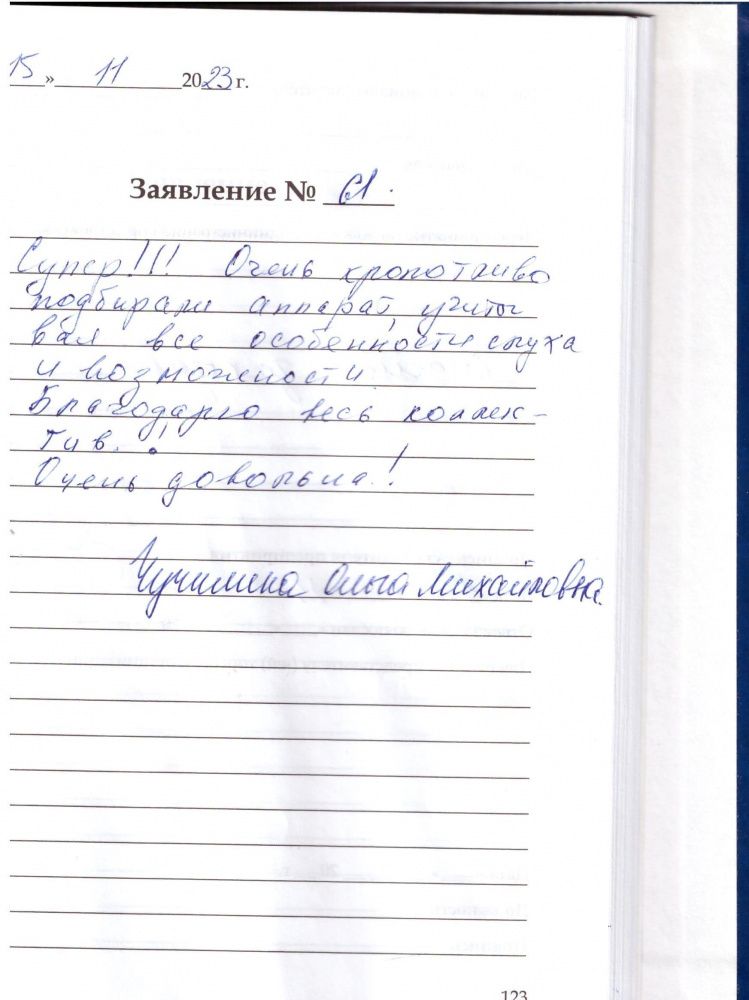 15 » 11 2023 г.
Заявление № 61.
Супер!!! Очень кропотливо
подбирали аппарат, учиты
вая все особенности слуха
и возможности.
Благодарю весь коллек-
тив.!
Очень довольна.!
Ольга Михайловна.
123